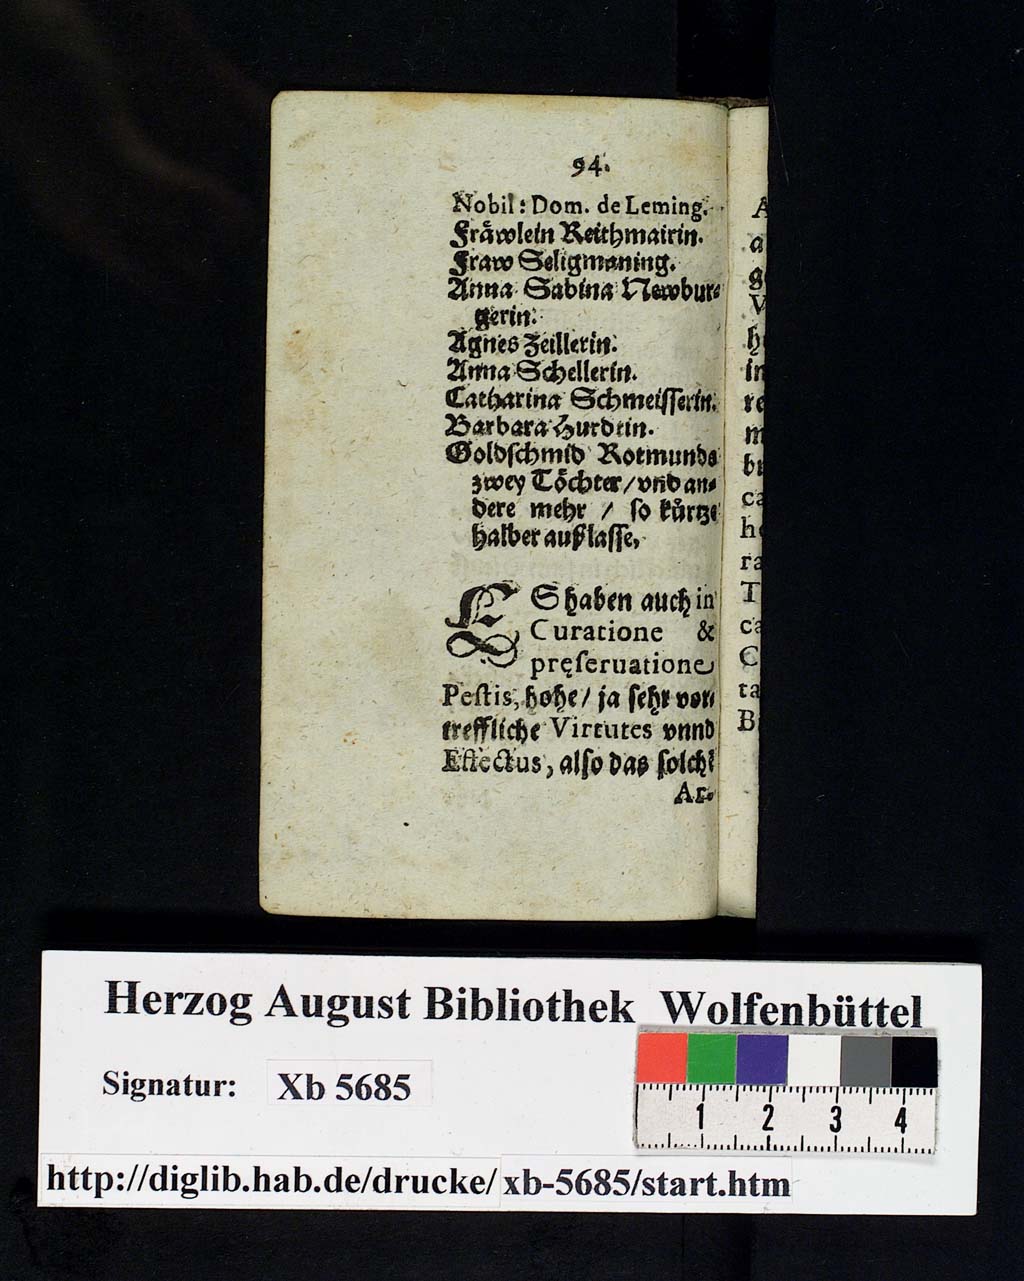 94.
Nobil: Dom. de Leming.
Fräwlein Reithmairin.
Fraw Seligmaning.
Anna Sabina Newbur-
gerin.
Agnes Zeillerin.
Anna Schellerin.
Catharina Schmeiſſerin.
Barbara Hurdtin.
Goldſchmid Rotmunds
zwey Töchter / vnd an-
dere mehr / ſo kürtze
halber außlaſſe,
ES haben auch in
Curatione &
pręſeruatione
Peſtis, hohe / ja ſehr vor-
treffliche Virtutes vnnd
Effectus, alſo das ſolche
Ar-
A
a
ge
V
he
in
re
m
br
ca
he
ra
T
ca
C
ta
B
Herzog August Bibliothek Wolfenbüttel
Signatur: Xb 5685
1 2 3 4
http://diglib.hab.de/drucke/ xb-5685/start.htm